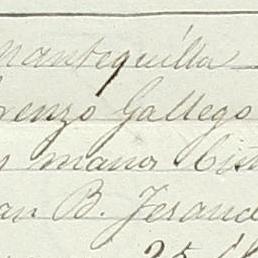 Mantequilla
renzo Gallego
s manos Cist
an B. Jerand
25